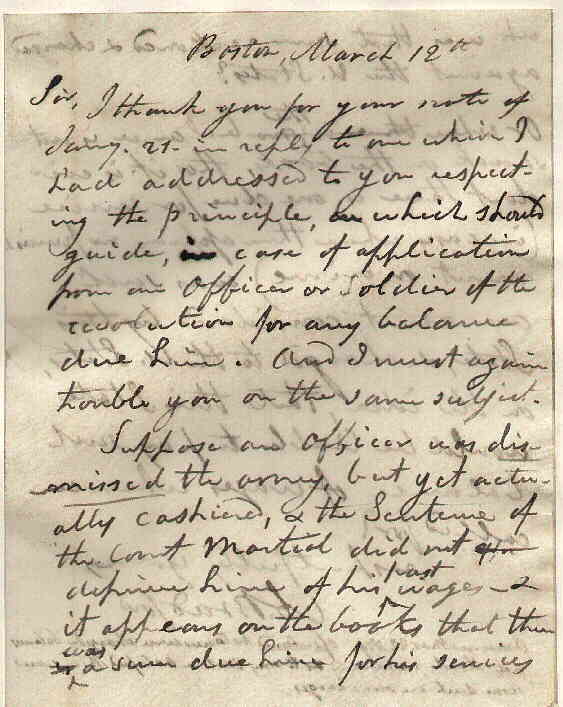 Boston, March 12th
Sir, I thank you for your note of
Jany. 21. in reply to one which I
had addressed to you respect-
ing the principle, on which should
guide, in case of application
from an Officer or Soldier of the
revolution for any balance
due him. And I must again
trouble you on the same subject.
Suppose an Officer was dis-
missed the army, but yet actu-
ally cashiered, & the Sentence of
the Court Martial did not
deprive him of his past wages - &
it appears on the books that there
was a sum due him for his services